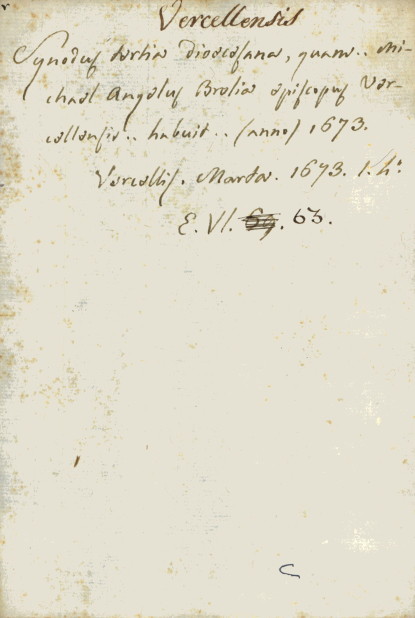 Vercellensis
Synodus tertia dioecesana, quam.. Mi-
chael Angelus Brolia episcopus Ver-
cellensis.. habuit.. (anno) 1673.
Vercellis. Marta. 1673. 1. h.
E. VI. 63.